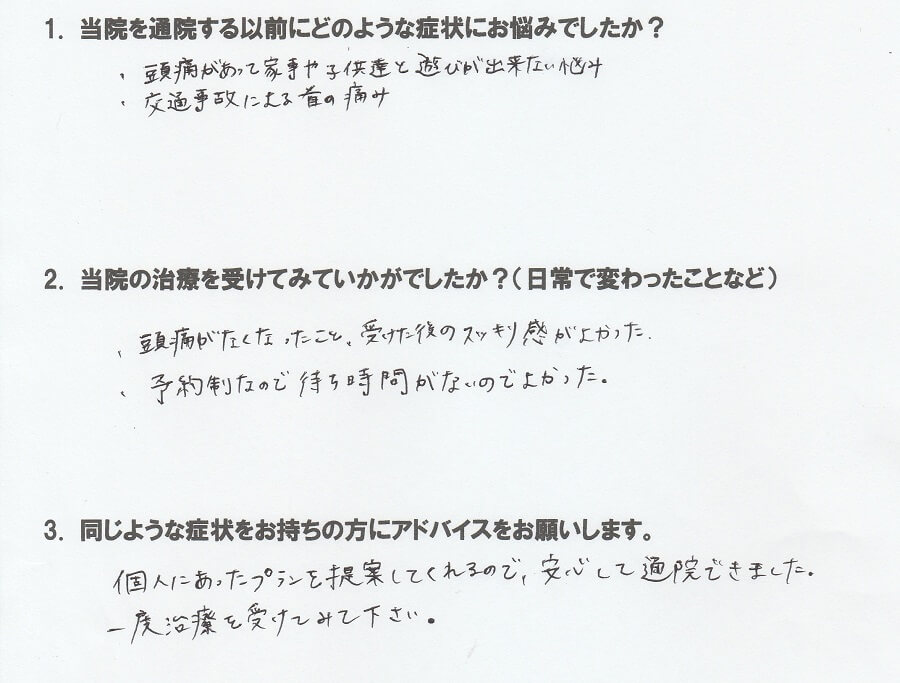 1. 当院を通院する以前にどのような症状にお悩みでしたか？
、頭痛があって家事や子供達と遊びが出来ない悩み
・交通事故による首の痛み
2. 当院の治療を受けてみていかがでしたか？（日常で変わったことなど）
、頭痛がなくなったこと、受けた後のスッキリ感がよかった.
、予約制なので待ち時間がないのでよかった。
3. 同じような症状をお持ちの方にアドバイスをお願いします。
個人にあったプランを提案してくれるので、安心して通院できました。
一度治療を受けてみて下さい。